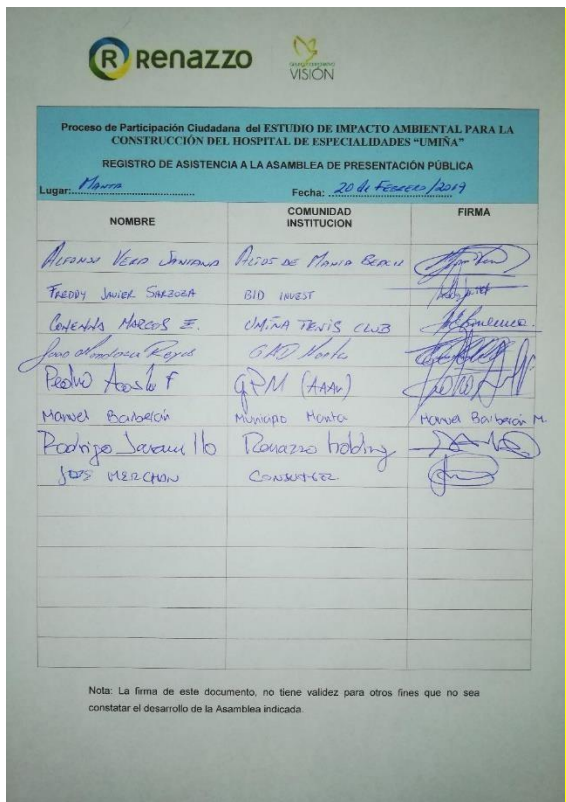 Renazzo
VISIÓN
Proceso de Participación Ciudadana del ESTUDIO DE IMPACTO AMBIENTAL PARA LA
CONSTRUCCIÓN DEL HOSPITAL DE ESPECIALIDADES “UMIÑA”
REGISTRO DE ASISTENCIA A LA ASAMBLEA DE PRESENTACIÓN PÚBLICA
Lugar: Manta Fecha: 20 de Febrero/2019
NOMBRE COMUNIDAD INSTITUCION FIRMA
Alfonso Vera Santana Altos de Manta Beach
Freddy Javier Sarzosa BID INVEST
Marcos E. UMIÑA TENIS CLUB
Mendoza Reyes GAD Manta
Pedro Acosta F GPM
Manuel Barberán Municipio Manta Manuel Barberán M.
Rodrigo Jaramillo Renazzo holding
José MERCHAN
Nota: La firma de este documento, no tiene validez para otros fines que no sea
constatar el desarrollo de la Asamblea indicada.